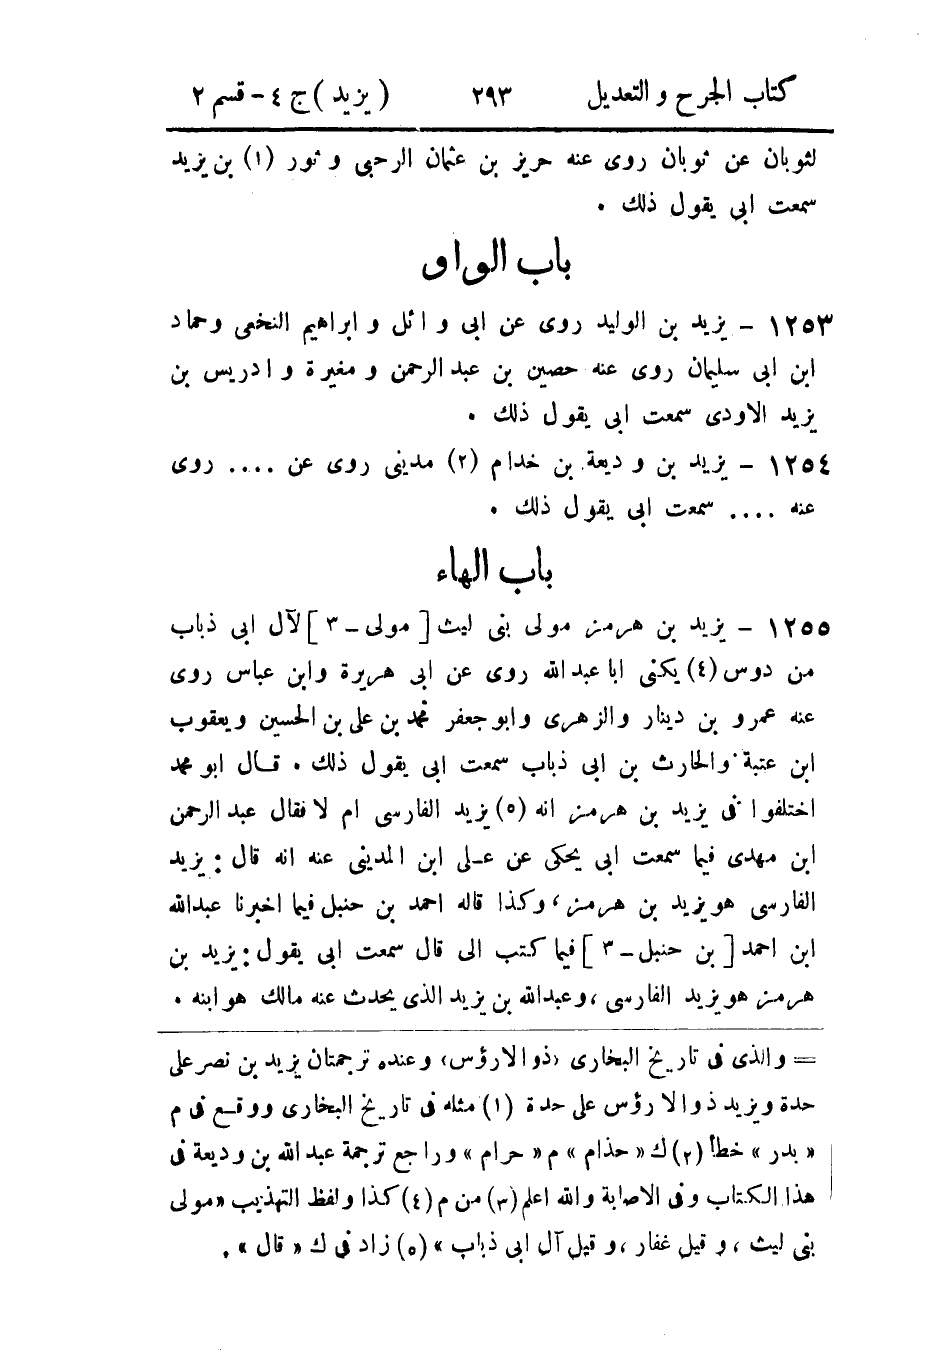 كتاب الجرح و التعديل ٢٩٣ (يزيد) ج ٤ - قسم ٢
لثوبان عن ثوبان روى عنه حريز بن عثمان الرحبي و ثور (١) بن يزيد
سمعت ابى يقول ذلك .
باب الواو
١٢٥٣ - يزيد بن الوليد روى عن ابى وائل و ابراهيم النخعى وحماد
ابن ابى سليمان روى عنه حصين بن عبد الرحمن و مغيرة و ادريس بن
يزيد الاودى سمعت ابى يقول ذلك .
١٢٥٤ - يزيد بن وديعة بن خدام (٢) مدينى روى عن .... روى
عنه .... سمعت ابى يقول ذلك .
باب الهاء
١٢٥٥ - يزيد بن هرمز مولى بنى ليث [ مولى - ٣ ] لآل ابى ذباب
من دوس (٤) يكنى ابا عبد الله روى عن ابى هريرة وابن عباس روى
عنه عمرو بن دينار والزهرى وابو جعفر محمد بن على بن الحسين ويعقوب
ابن عتبة والحارث بن ابى ذباب سمعت ابى يقول ذلك . قال ابو محمد
اختلفوا فى يزيد بن هرمز انه (٥) يزيد الفارسى ام لا فقال عبد الرحمن
ابن مهدى فيما سمعت ابى يحكى عن على ابن المدينى عنه انه قال : يزيد
الفارسى هو يزيد بن هرمز ، وكذا قاله احمد بن حنبل فيما اخبرنا عبدالله
ابن احمد [ بن حنبل - ٣ ] فيما كتب الى قال سمعت ابى يقول : يزيد بن
هرمز هو يزيد الفارسى ، وعبدالله بن يزيد الذى يحدث عنه مالك هو ابنه .
= والذى فى تاريخ البخارى «ذو الارؤس» وعنده ترجمتان يزيد بن نصر على
حدة ويزيد ذو الارؤس على حدة (١) مثله فى تاريخ البخارى ووقع فى م
« بدر » خطأ (٢) ك « حذام » م « حرام » وراجع ترجمة عبد الله بن وديعة فى
هذا الكتاب وفى الاصابة والله اعلم (٣) من م (٤) كذا ولفظ التهذيب « مولى
بنى ليث ، و قيل غفار ، و قيل آل ابى ذباب » (٥) زاد فى ك « قال » .